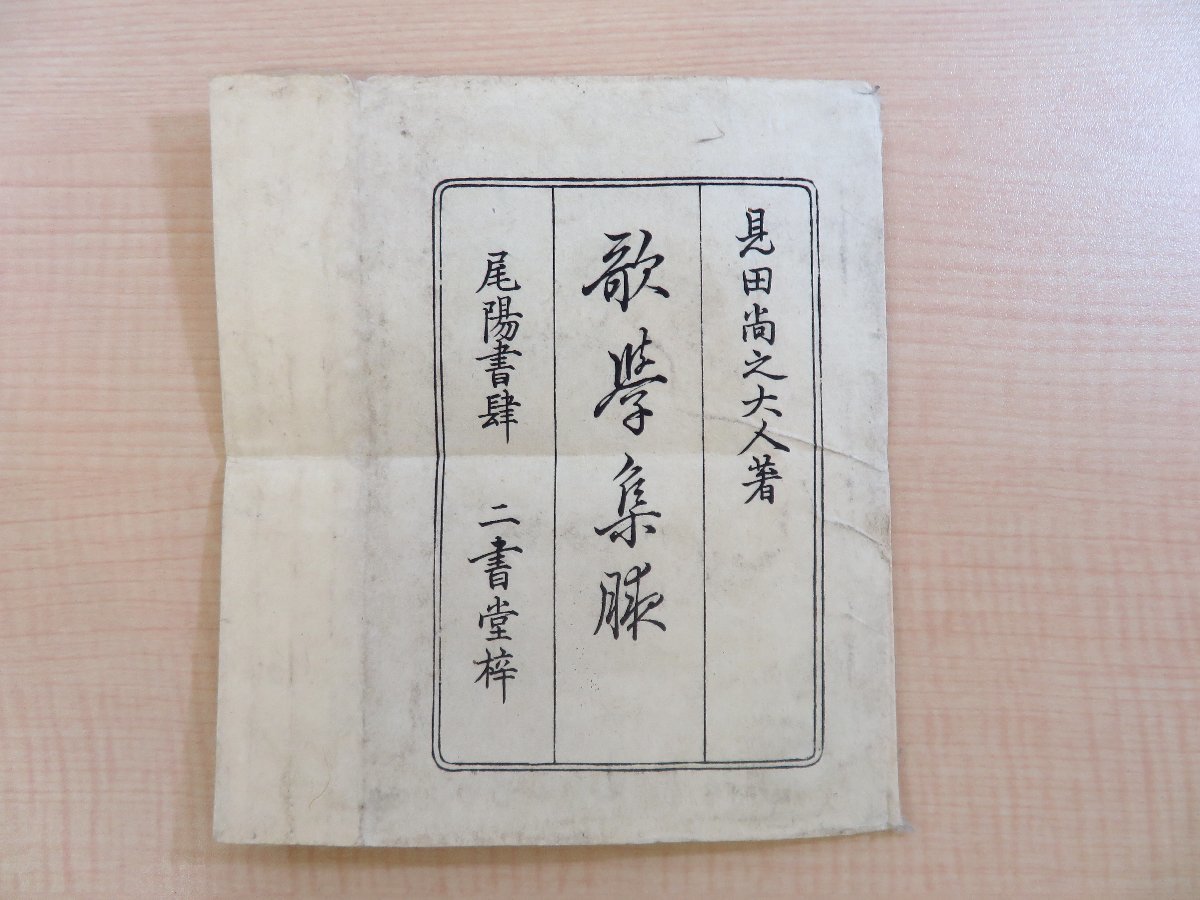 見田尚之大人著
歌學集腋
尾陽書肆 二書堂梓